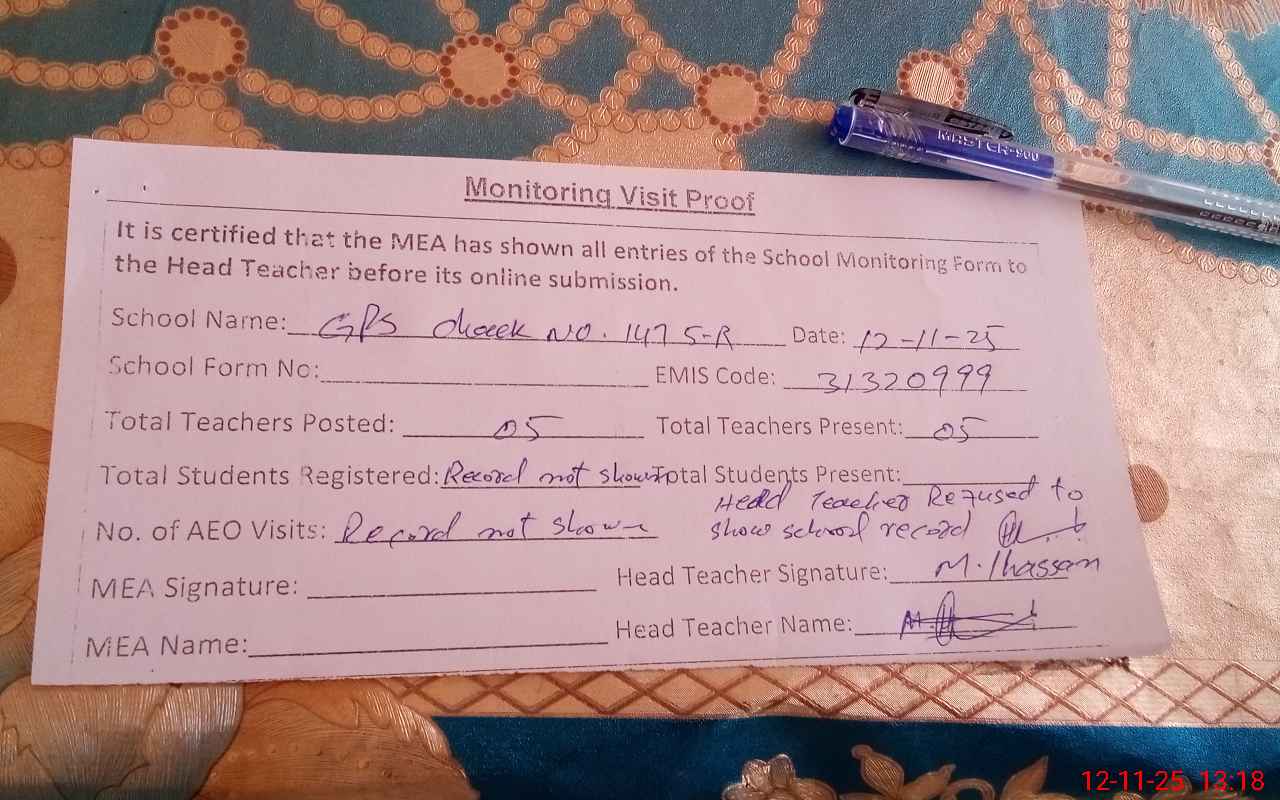 MASTER-900
Monitoring Visit Proof
It is certified that the MEA has shown all entries of the School Monitoring Form to
the Head Teacher before its online submission.
School Name: GPS chack NO. 147 5-R Date: 12-11-25
School Form No: EMIS Code: 31320999
Total Teachers Posted: 05 Total Teachers Present: 05
Total Students Registered: Record not shown Total Students Present:
Head Teacher Refused to
No. of AEO Visits: Record not shown show school record
MEA Signature: Head Teacher Signature: M.
MEA Name: Head Teacher Name:
12-11-25 13:18